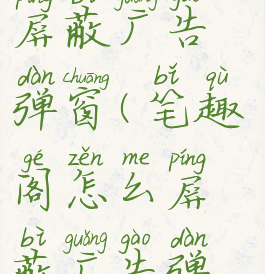 píng bì guǎng gào
屏蔽广告
dàn chuāng bǐ qù
弹窗(笔趣
gé zěn me píng
阁怎么屏
bì guǎng gào dàn
蔽广告弹